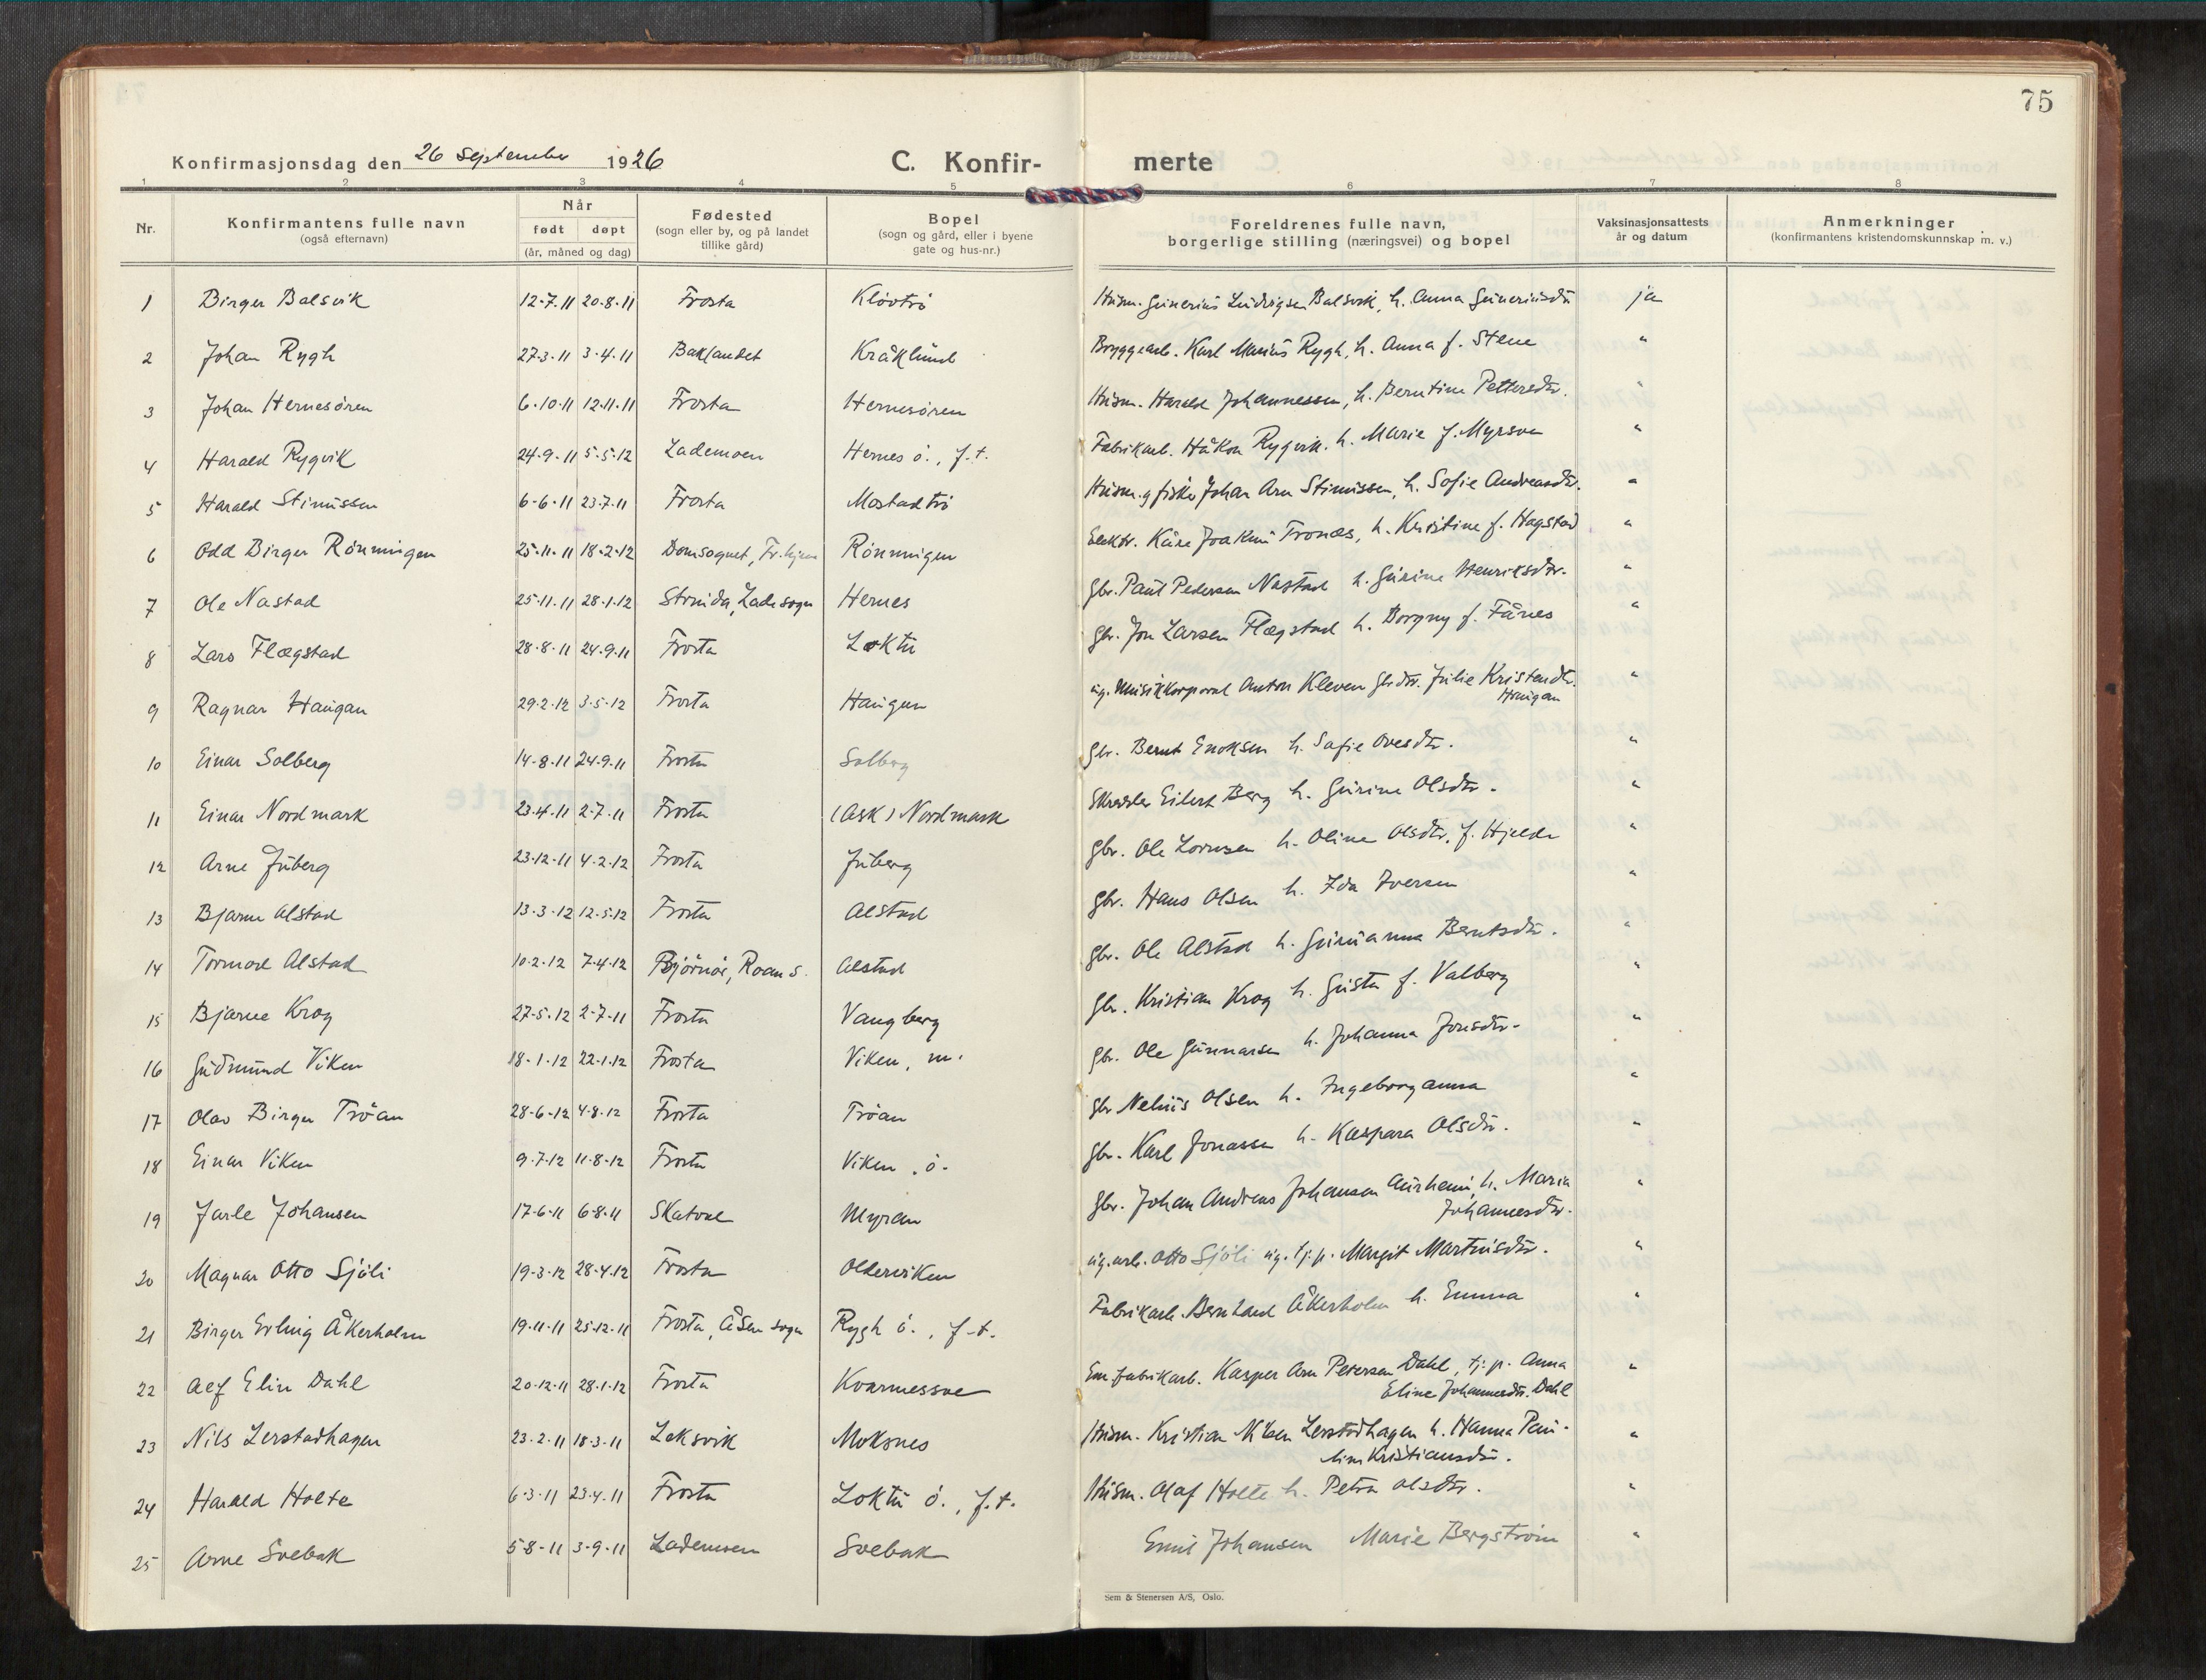 75
Konfirmasjonsdag den 26 September 1926
C. Konfir-
merte
1 2 3 4 5 6 7 8
Nr.
Konfirmantens fulle navn
(også efternavn)
Når
født døpt
(år, måned og dag)
Fødested
(sogn eller by, og på landet
tillike gård)
Bopel
(sogn og gård, eller i byene
gate og hus-nr.)
Foreldrenes fulle navn,
borgerlige stilling (næringsvei) og bopel
Vaksinasjonsattests
år og datum
Anmerkninger
(konfirmantens kristendomskunnskap m. v.)
1 Birger Balsvik 12-7-11 20-8-11 Frosta Kløvtrø Husm. Gunerius Ludvigsen Balsvik, h. Anna Guneriusdtr ja
2 Johan Rygh 27-3-11 3-4-11 Baklandet Kråklund Bryggearb. Karl Marius Rygh, h. Anna f. Stene "
3 Johan Hernesøren 6-10-11 12-11-11 Frosta Hernesøren Husm. Harald Johannessen, h. Berntine Pettersdtr. "
4 Harald Rygvik 24-9-11 5-5-12 Lademoen Hernes ö., f.t. Fabrikarb. Håkon Rygvik. h. Marie f. Myrsve "
5 Harald Stinussen 6-6-11 23-7-11 Frosta Mostadtrø Husm. g fisker Johan Arn Stinussen, h. Sofie Andreasdtr. "
6 Odd Birger Rönningen 25-11-11 18-2-12 Domsognet, Fr.hjem Rönningen Elektr. Kåre Joakim Tronæs, h. Kristine f. Hagstad "
7 Ole Nastad 25-11-11 28-1-12 Strinda, Lade sogn Hernes Gbr. Paul Pedersen Nastad h. Gurine Henriksdtr. "
8 Lars Flægstad 28-8-11 24-9-11 Frosta Loktu Gbr. Jon Larsen Flægstad h. Borgny f. Fånes "
9 Ragnar Haugan 29-2-12 3-5-12 Frosta Haugan ug. Musikkorporal Anton Kleven gbrdtr. Julie Kristendtr. "
Haugan
10 Einar Solberg 14-8-11 24-9-11 Frosta Solberg Gbr. Bernt Enoksen h. Sofie Ovesdtr. "
11 Einar Nordmark 23-4-11 2-7-11 Frosta (Ask) Nordmark Skredder Eilert Berg h. Gurine Olsdtr. "
12 Arne Juberg 23-12-11 4-2-12 Frosta Juberg Gbr. Ole Lornsen h. Oline Olsdtr. f. Hjelde "
13 Bjarne Alstad 13-3-12 12-5-12 Frosta Alstad Gbr. Hans Olsen h. Ida Iversen "
14 Tormod Alstad 10-2-12 7-4-12 Björnör, Roan s. Alstad Gbr. Ole Alstad h. Gurianna Berntsdtr. "
15 Bjarne Krog 27-5-12 2-7-11 Frosta Vangberg Gbr. Kristian Krog h. Gusta f. Valberg "
16 Gudmund Viken 18-1-12 22-1-12 Frosta Viken, m. Gbr. Ole Gunnarsen h. Johanna Jonsdtr. "
17 Olav Birger Tröan 28-6-12 4-8-12 Frosta Tröan Gbr Nelius Olsen h. Ingeborganna "
18 Einar Viken 9-7-12 11-8-12 Frosta Viken. ö. Gbr. Karl Jonassen h. Kaspara Olsdtr. "
19 Jarle Johansen 17-6-11 6-8-11 Skatval Myran Gbr. Johan Andreas Johansen Aurhemi, h. Maria "
Johannesdtr.
20 Magnar Otto Sjöli 19-3-12 28-4-12 Frosta Olderviken ug. arb. Otto Sjöli ug. tj.p. Margit Martinsdtr. "
21 Birger Erling Åkerholm 19-11-11 25-12-11 Frosta, Åsen sogn Rygh ö., f.t. Fabrikarb. Bernhard Åkerholm h. Emma "
22 Alf Elin Dahl 20-12-11 28-1-12 Frosta Kvarmessve Em fabrikarb. Kasper Arn Petersen Dahl, tj.p. Anna "
Eline Johannesdtr. Dahl
23 Nils Lerstadhagen 23-2-11 18-3-11 Leksvik Moksnes Husm. Kristian Nilsen Lerstadhagen h. Hanna Pau- "
line Kristiansdtr.
24 Harald Holte 6-3-11 23-4-11 Frosta Loktu ö., f.t. Husm. Olaf Holte h. Petra Olsdtr. "
25 Arne Svebak 5-8-11 3-9-11 Lademoen Svebak Emil Johansen Marie Bergström "
Sem & Stenersen A/S, Oslo.